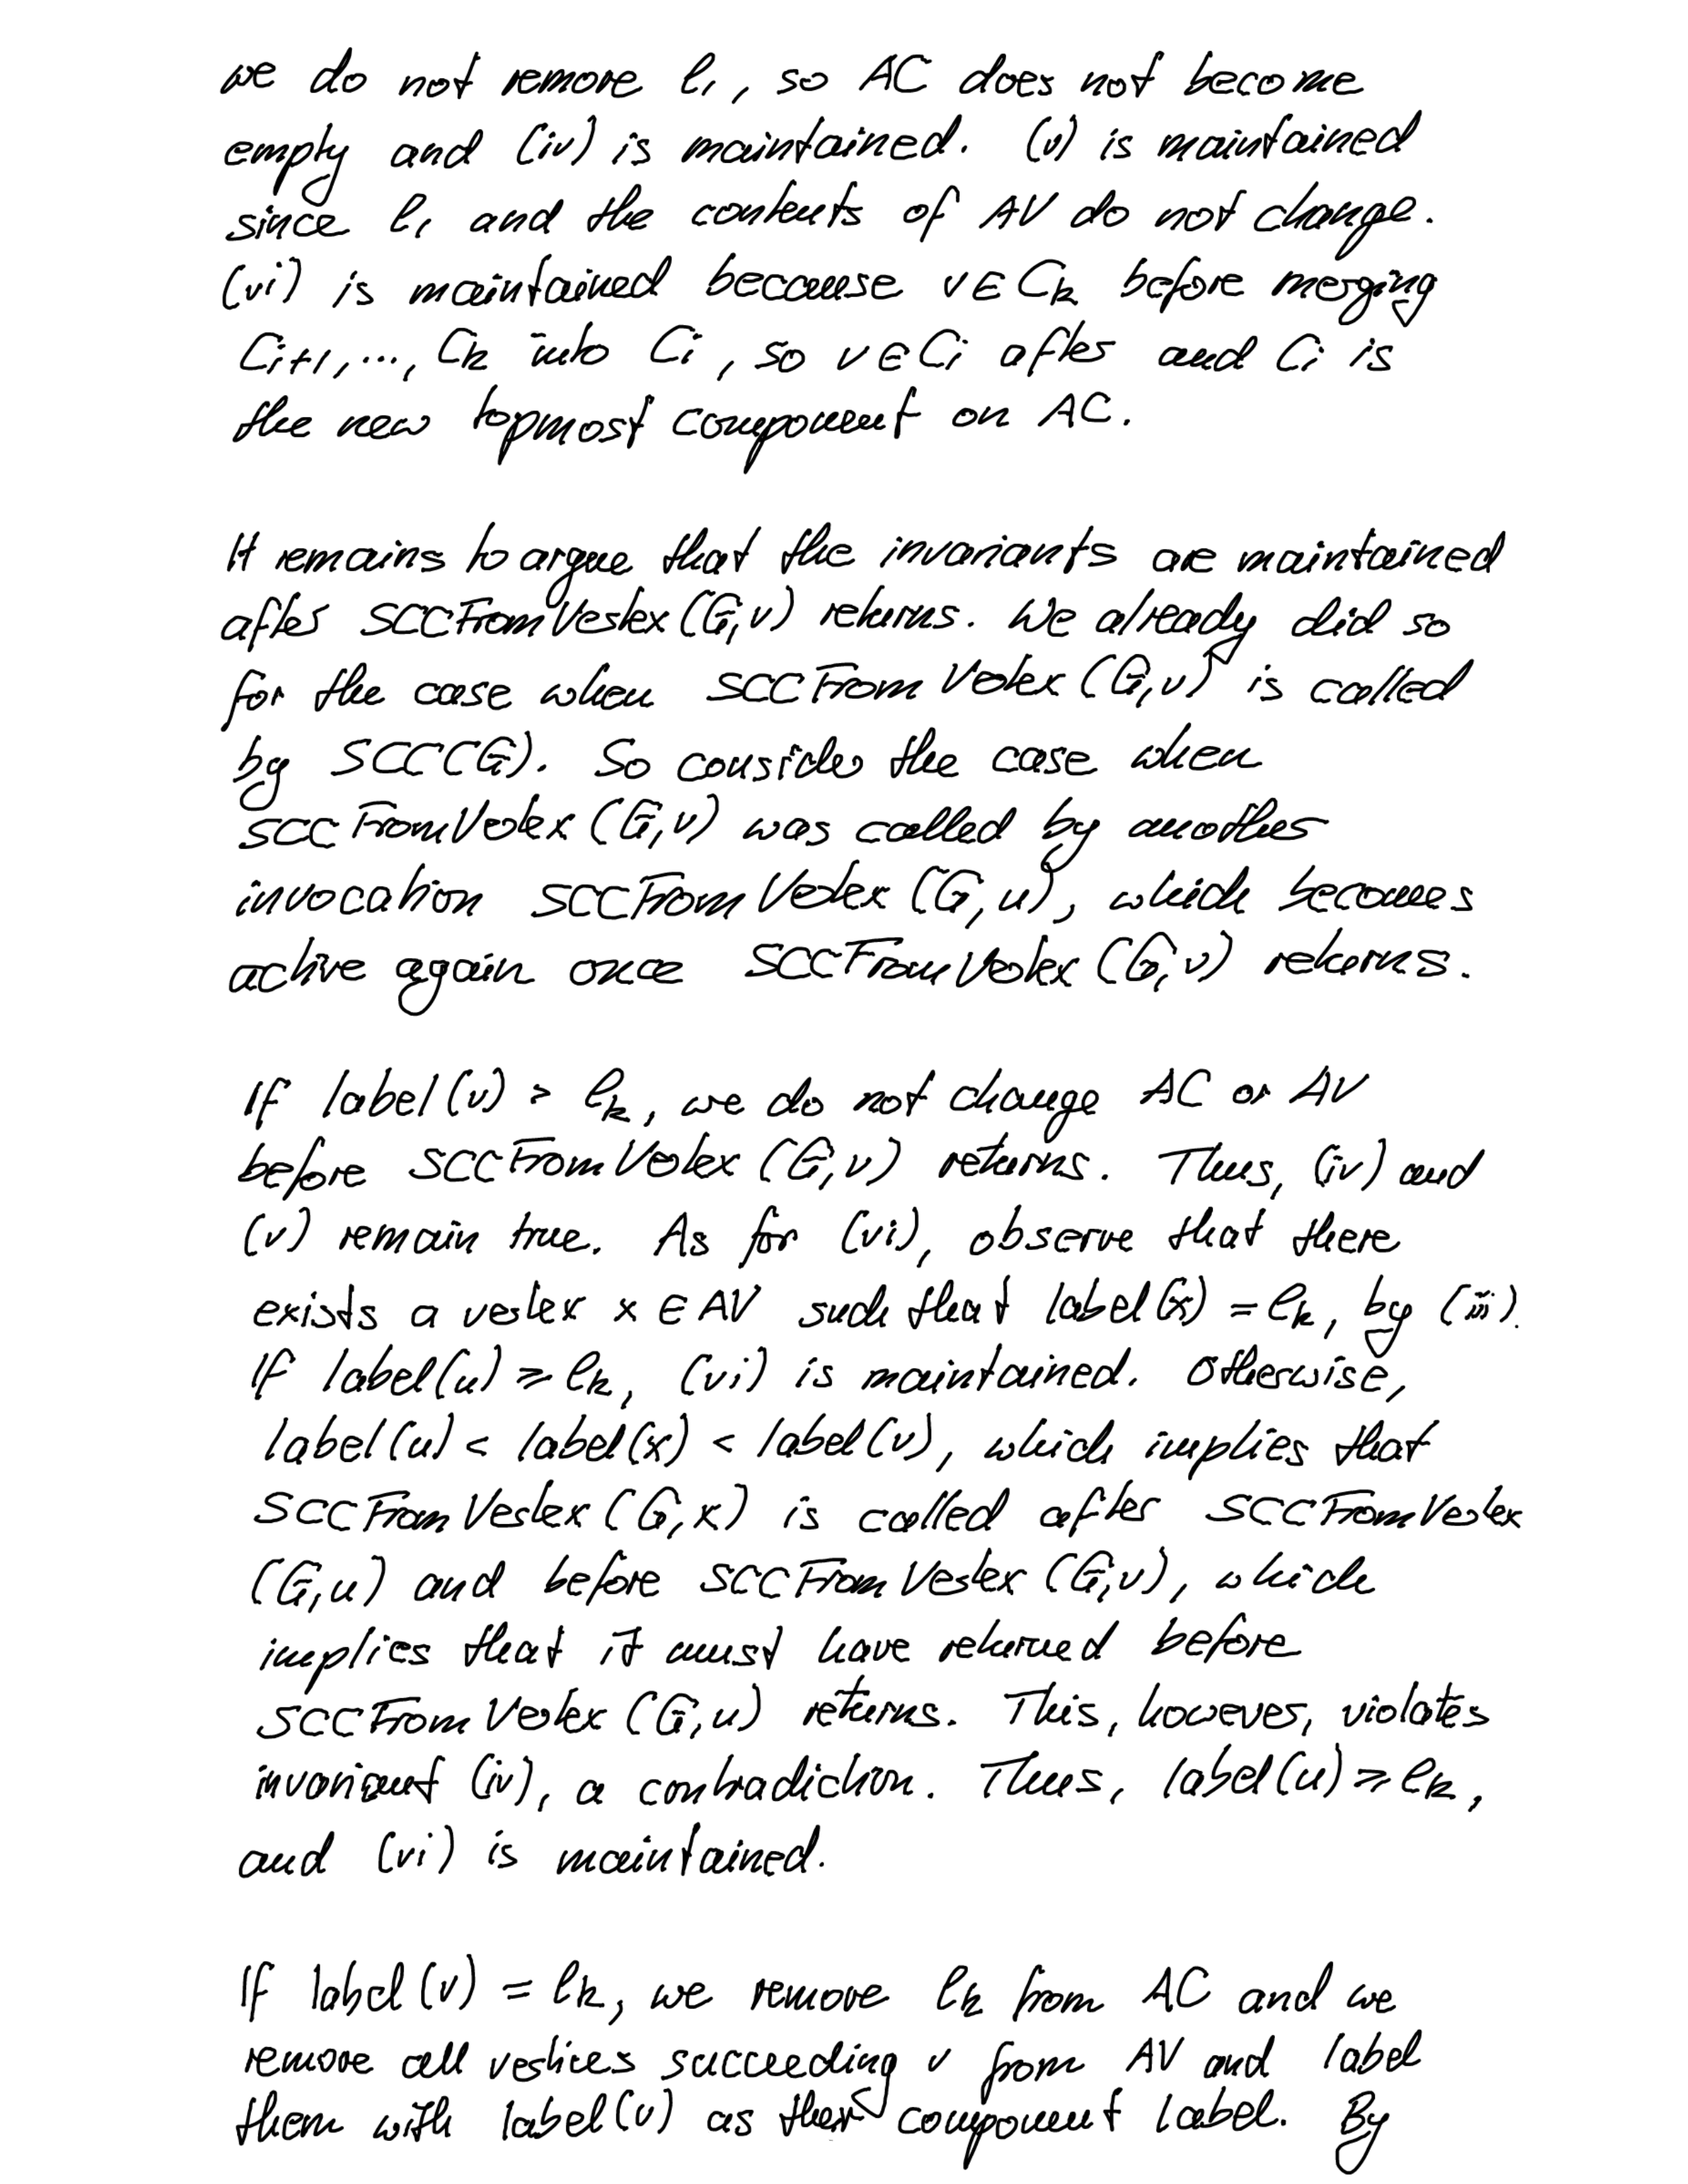 we do not remove l₁, so AC does not become
empty and (iv) is maintained. (v) is maintained
since l₁ and the contents of AV do not change.
(vi) is maintained because v ∈ Cₖ before merging
Cᵢ₊₁, ..., Cₖ into Cᵢ, so v ∈ Cᵢ after and Cᵢ is
the new topmost component on AC.
It remains to argue that the invariants are maintained
after SCCFromVertex(G,v) returns. We already did so
for the case when SCCFromVertex(G,v) is called
by SCC(G). So consider the case when
SCCFromVertex(G,v) was called by another
invocation SCCFromVertex(G,u), which becomes
active again once SCCFromVertex(G,v) returns.
If label(v) > lₖ, we do not change AC or AV
before SCCFromVertex(G,v) returns. Thus, (iv) and
(v) remain true. As for (vi), observe that there
exists a vertex x ∈ AV such that label(x) = lₖ, by (iii).
If label(u) ≥ lₖ, (vi) is maintained. Otherwise,
label(u) < label(x) < label(v), which implies that
SCCFromVertex(G,x) is called after SCCFromVertex
(G,u) and before SCCFromVertex(G,v), which
implies that it must have returned before
SCCFromVertex(G,u) returns. This, however, violates
invariant (iv), a contradiction. Thus, label(u) ≥ lₖ,
and (vi) is maintained.
If label(v) = lₖ, we remove lₖ from AC and we
remove all vertices succeeding v from AV and label
them with label(v) as their component label. By